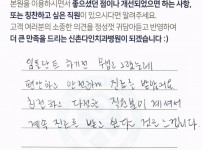 본원을 이용하시면서 좋으셨던 점이나 개선되었으면 하는 사항,
또는 칭찬하고 싶은 직원이 있으시다면 알려주세요.
고객 여러분의 소중한 의견을 정성껏 귀담아듣고 반영하여
더 큰 만족을 드리는 신촌다인치과병원이 되겠습니다 :)
임플란트 하기전 무섭고 그랬는데
편안하고 안전하게 진료를 받았어요
친절하고 다정한 직원분이 계셔서
계속 진료를 받으